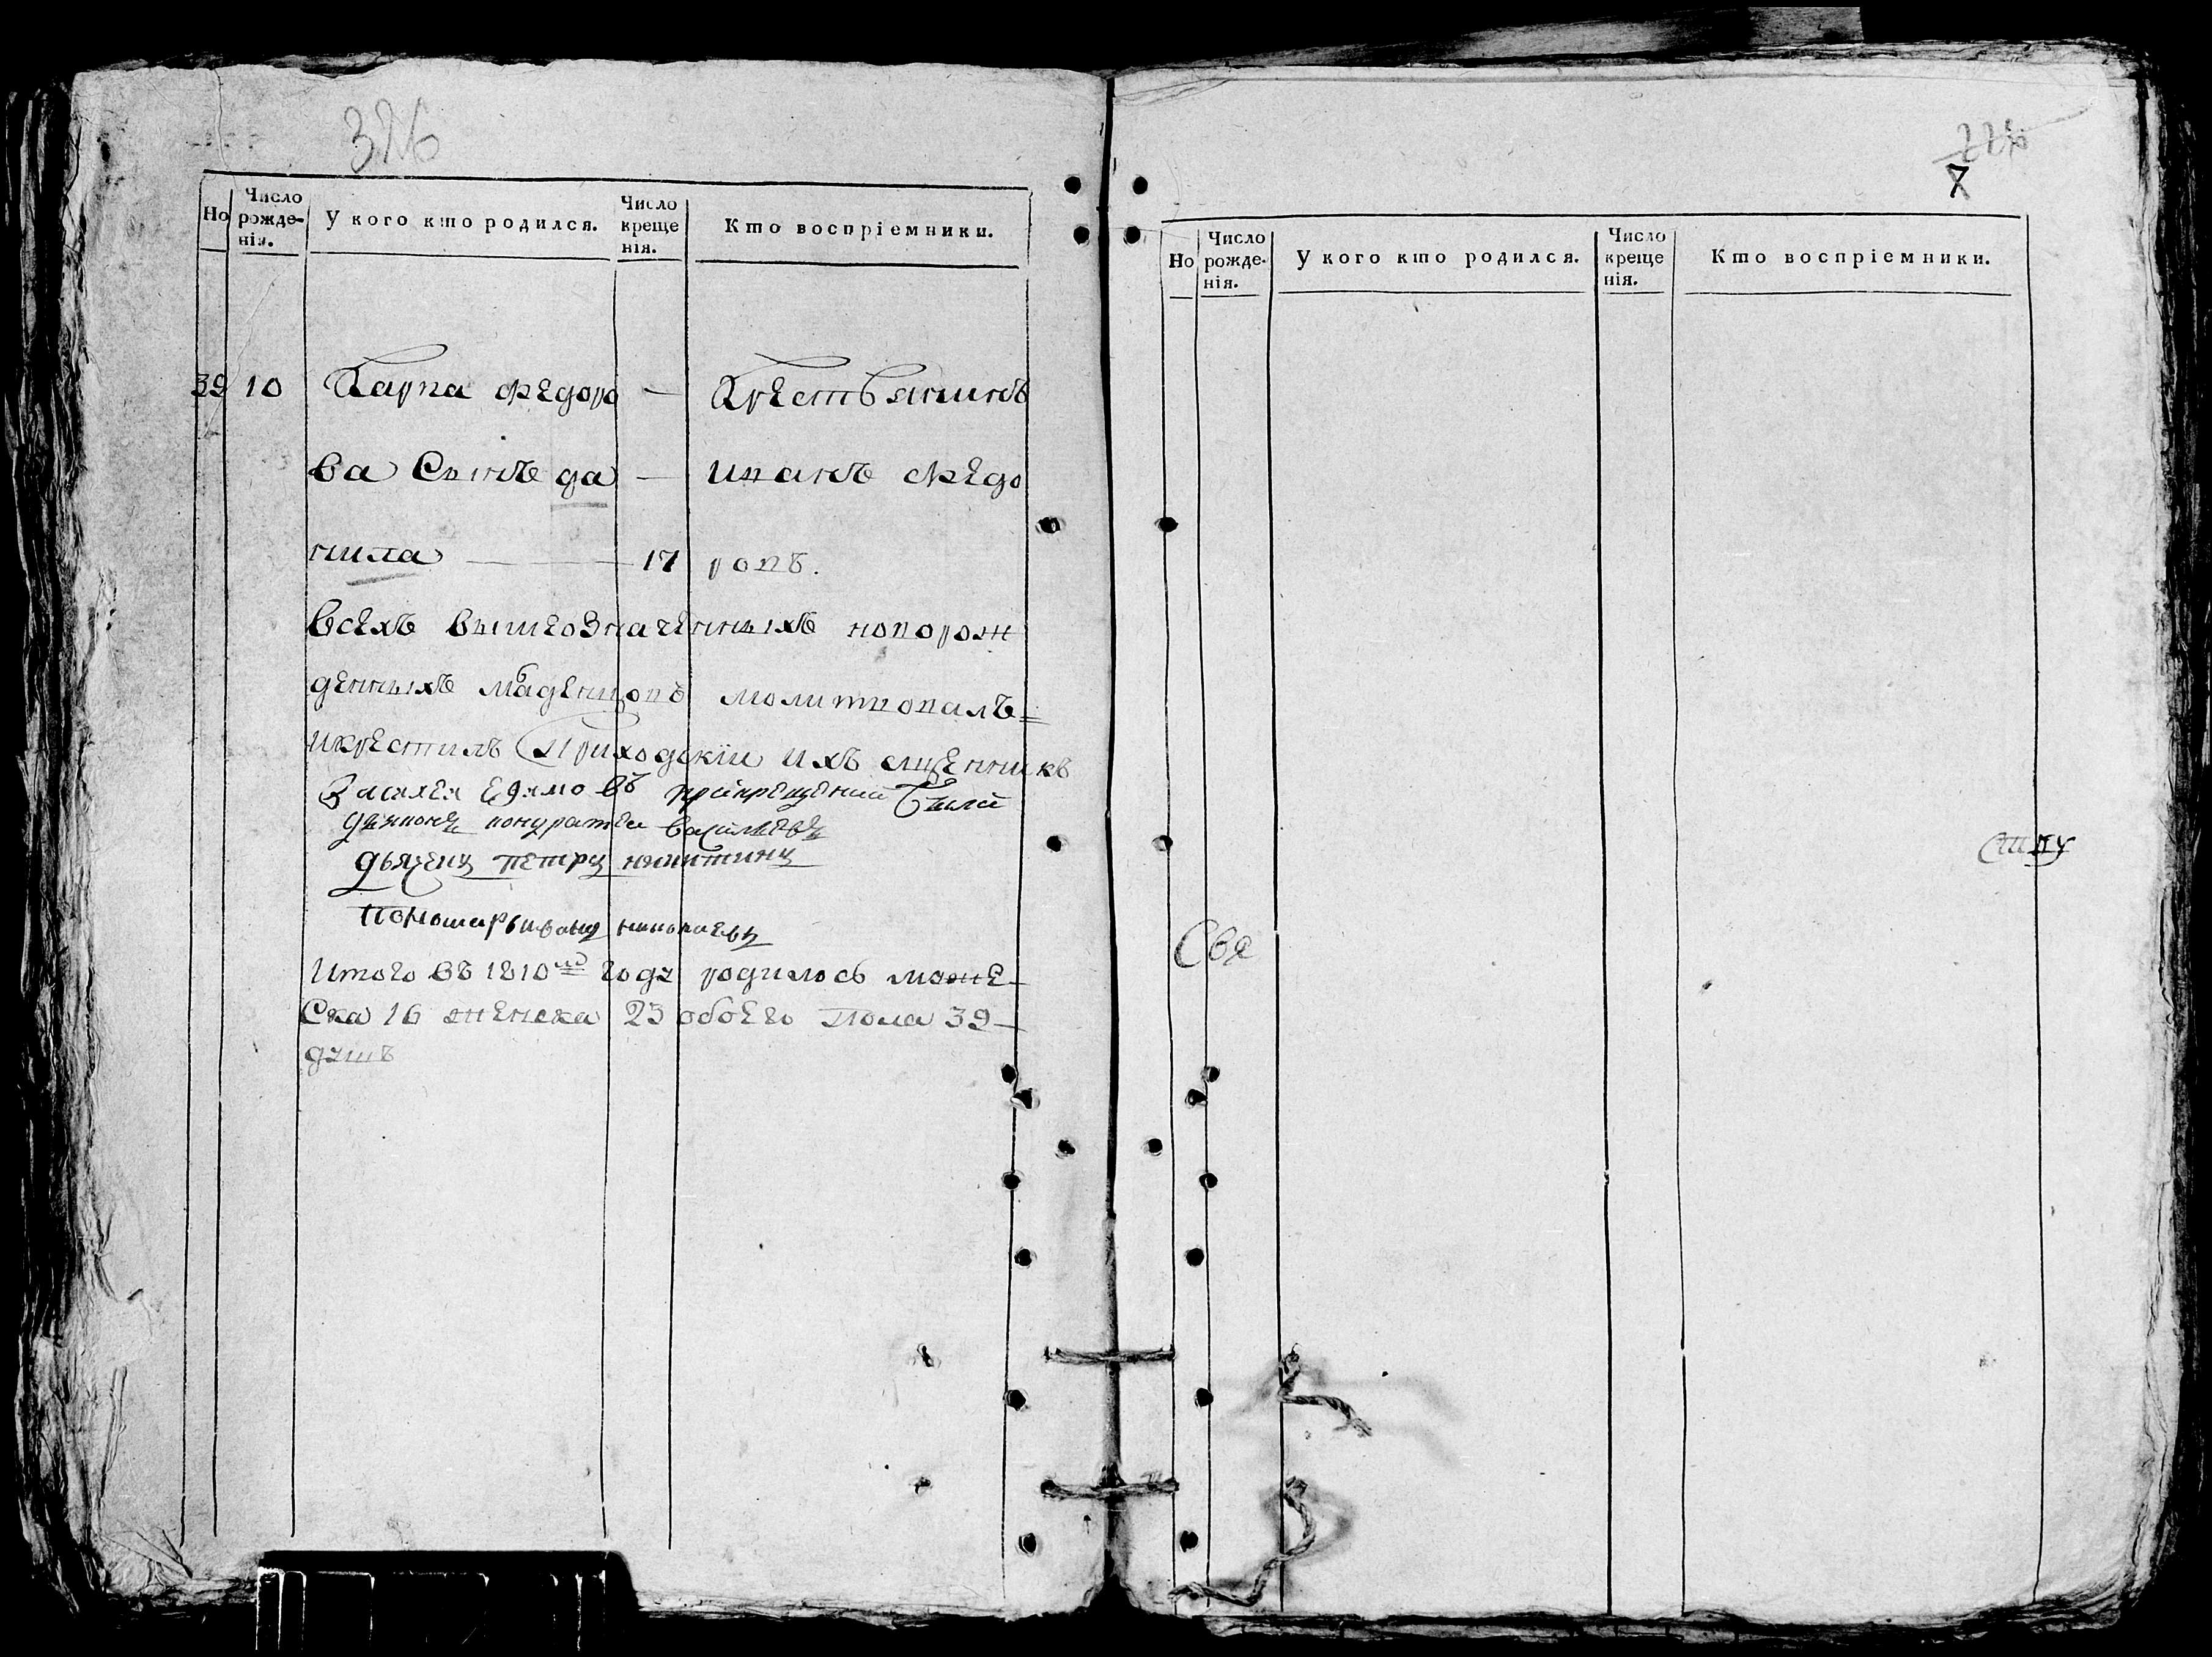 326
Но
Число рожденія.
У кого кто родился.
Число крещенія.
Кто воспріемники.
39 10 Карпа Федоро — Крестьянинъ
ва Сынъ да — иванъ Федо
нила — 17 ровъ.
Всехъ вышеозначенныхъ новорож
денныхъ младенцовъ молитвовалъ
икрестилъ Приходскіи ихъ сщенникъ
Василеи прикрещении были
Василѣевъ
дьячецъ петръ никитинъ
Пономарь иванъ
Итого въ 1810мъ году родилось може
Ска 16 женска 23 обоего пола 39
душъ
7
Но
Число рожденія.
У кого кто родился.
Число крещенія.
Кто воспріемники.
Свя